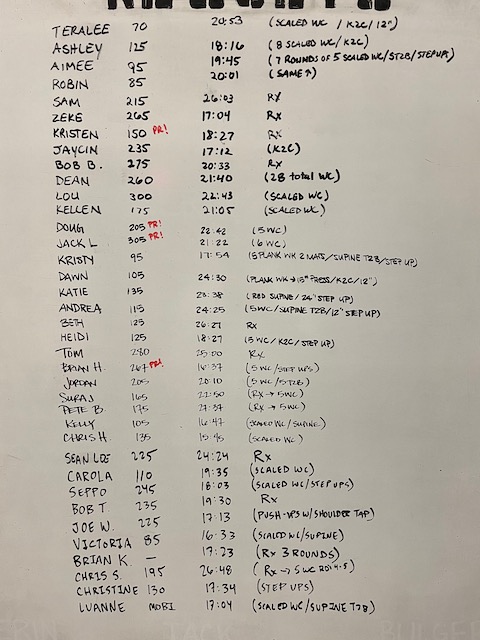 TERALEE 70 20:53 (SCALED WC / K2C / 12")
ASHLEY 125 18:16 (8 SCALED WC / K2C)
AIMEE 95 19:45 (7 ROUNDS OF 5 SCALED WC/ST2B/STEPUPS)
ROBIN 85 20:01 (SAME ↑)
SAM 215 26:03 RX
ZEKE 265 17:04 RX
KRISTEN 150 PR! 18:27 RX
JAYCIN 235 17:12 (K2C)
BOB B. 275 20:33 RX
DEAN 260 21:40 (28 TOTAL WC)
LOU 300 22:43 (SCALED WC)
KELLEN 175 21:05 (SCALED WC)
DOUG 205 PR! 22:42 (5 WC)
JACK L 305 PR! 21:22 (6 WC)
KRISTY 95 17:54 (5 PLANK WK 2 MATS/SUPINE T2B/STEP UP)
DAWN 105 24:30 (PLANK WK → 15# PRESS/K2C/12")
KATIE 135 23:38 (RED SUPINE / 24" STEP UP)
ANDREA 115 24:25 (5WC/SUPINE T2B/12" STEP UP)
BETH 125 26:27 RX
HEIDI 125 18:27 (5 WC/K2C/STEP UP)
TOM 280 25:00 RX
BRIAN H. 267 PR! 16:37 (5 WC/STEP UPS)
JORDAN 205 20:10 (5 WC/ST2B)
SURAJ 165 22:50 (RX → 5WC)
PETE B. 175 27:37 (RX → 5WC)
KELLY 105 16:47 (SCALED WC/SUPINE)
CHRIS H. 135 15:45 (SCALED WC)
SEAN LOE 225 24:24 RX
CAROLA 110 19:35 (SCALED WC)
SEPPO 245 18:03 (SCALED WC/STEP UPS)
BOB T. 235 19:30 RX
JOE W. 225 17:13 (PUSH-UPS W/SHOULDER TAP)
VICTORIA 85 16:33 (SCALED WC/SUPINE)
BRIAN K. — 17:23 (RX 3 ROUNDS)
CHRIS S. 195 26:48 (RX → 5 WC RDS 4-5)
CHRISTINE 130 17:34 (STEP UPS)
LUANNE MOBI 17:04 (SCALED WC/SUPINE T2B)